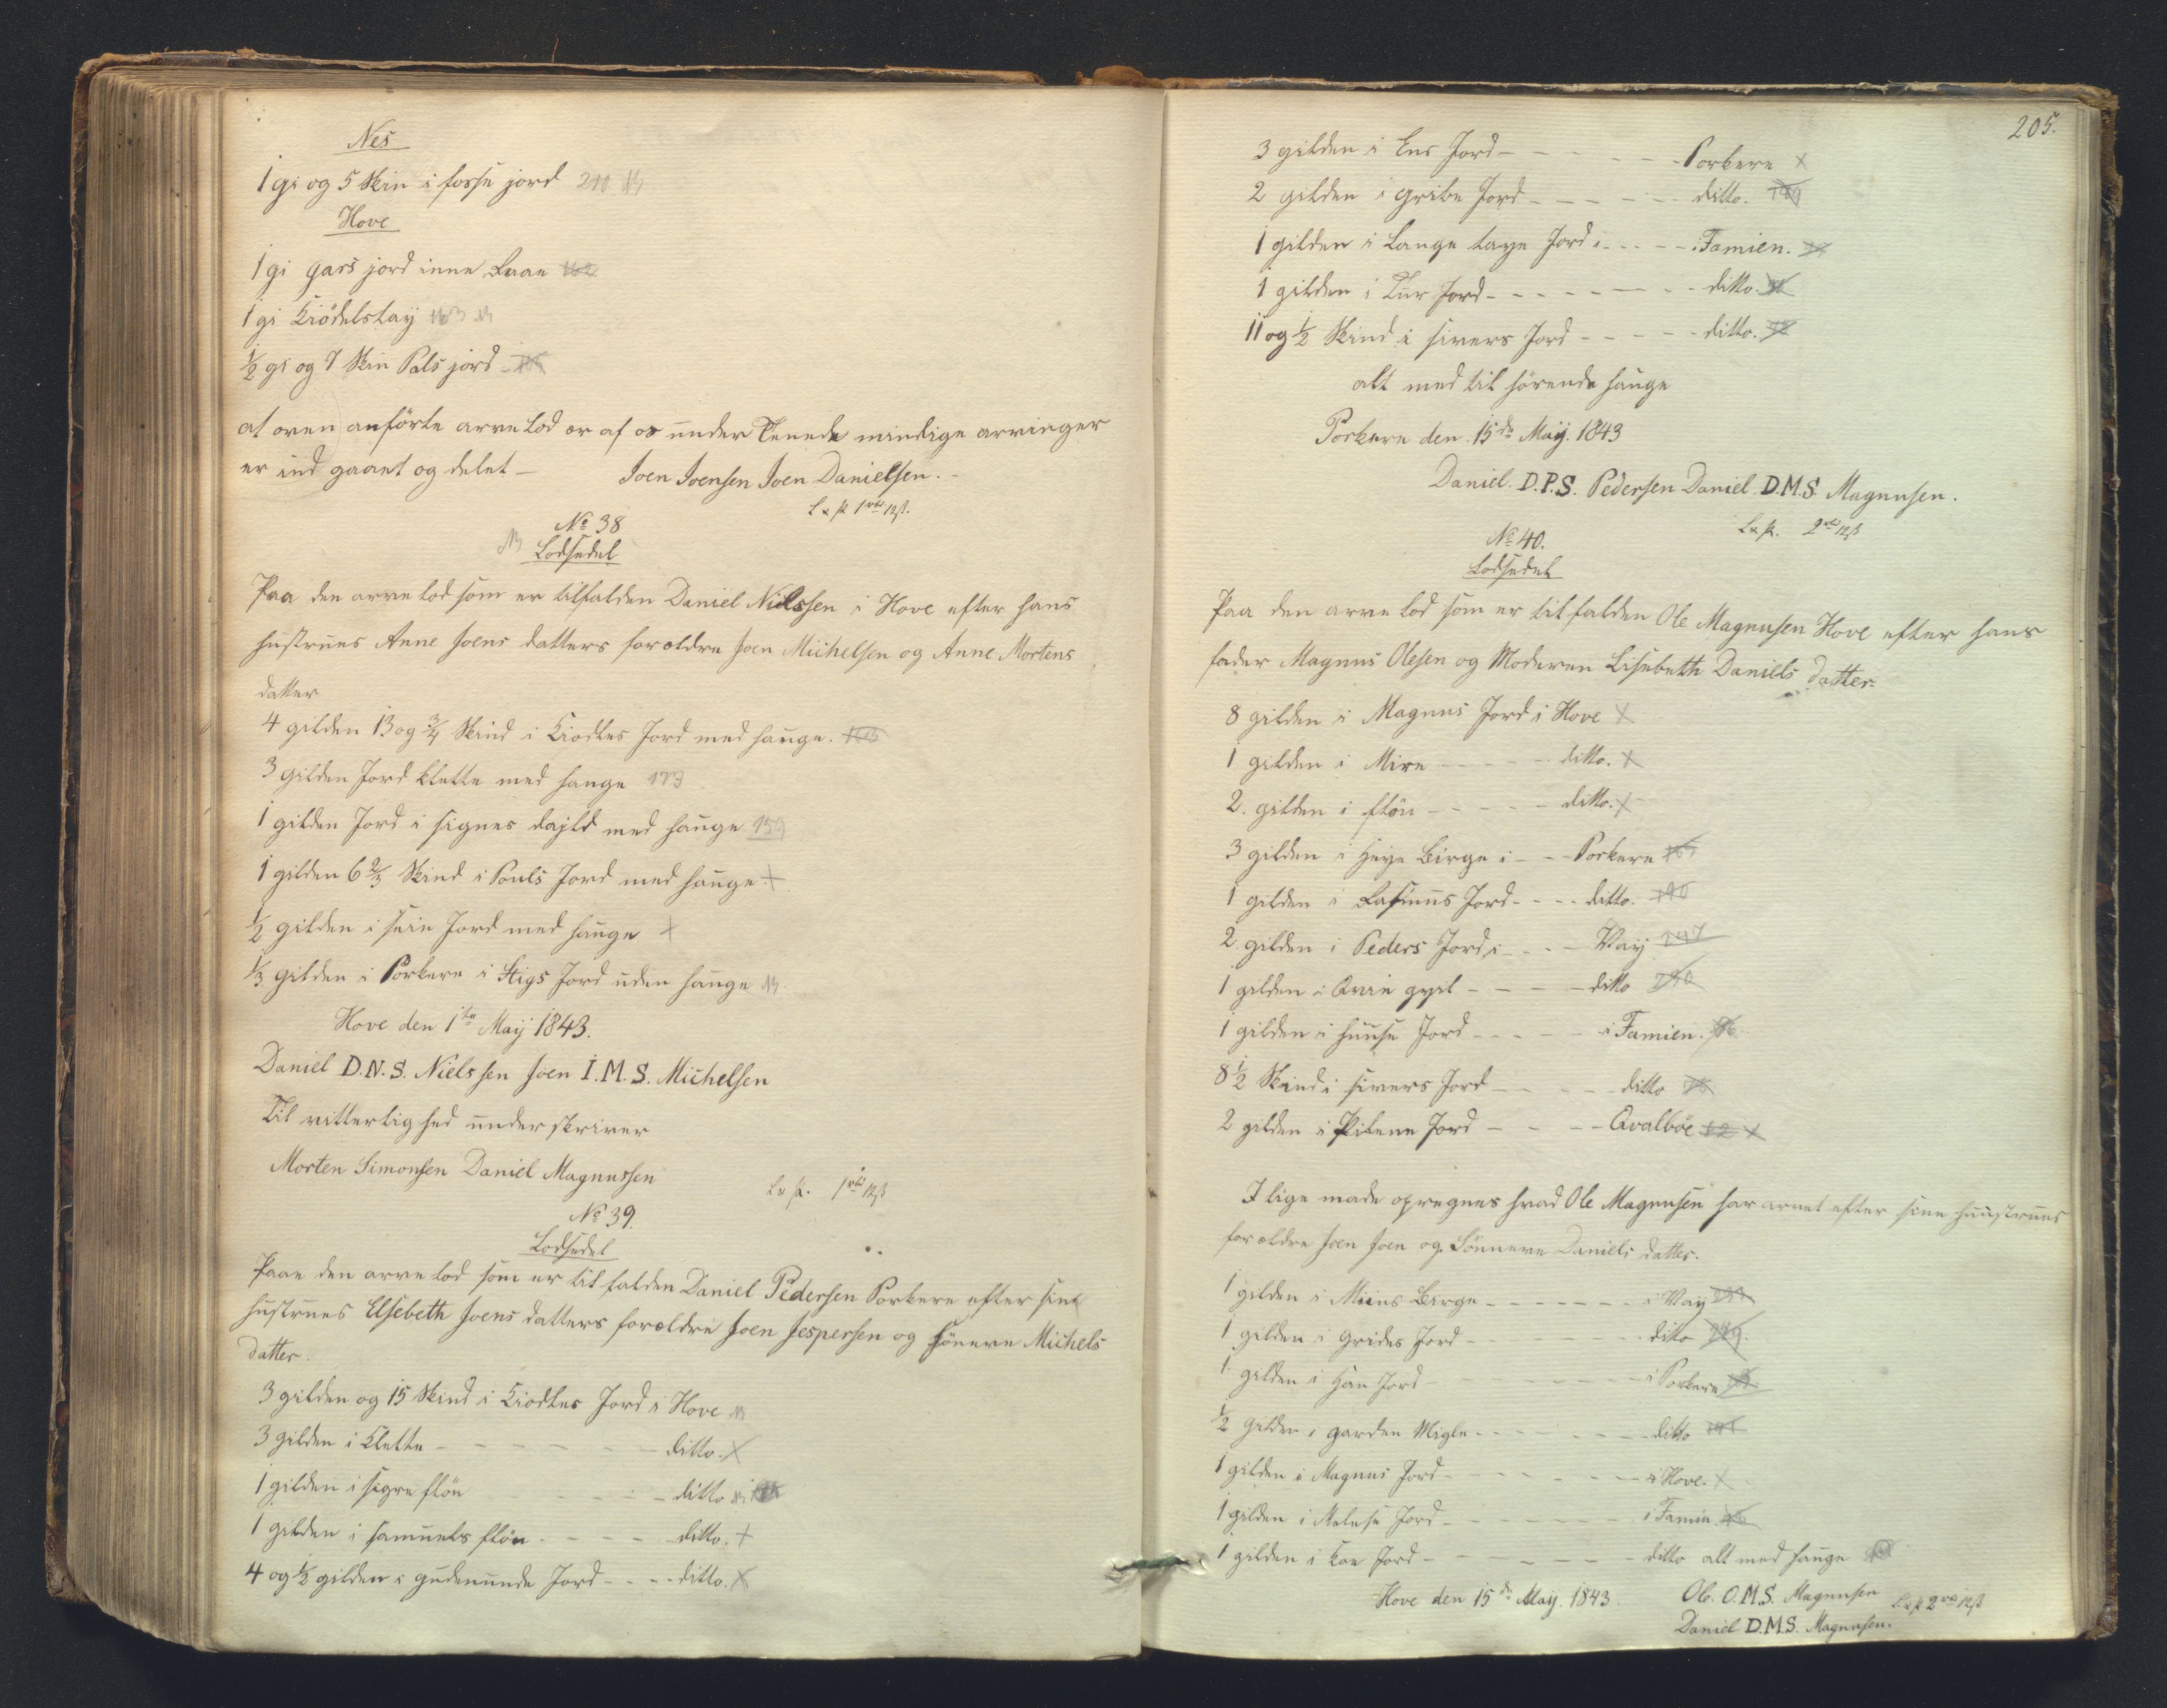 Nes
1 gi og 5 Skin i fosse jord 210
Hove
1 gi gars jord inne Laan 162
1 gi Kiödelstay 163
½ gi og 7 Skin Pals jord
at oven anförte arve Lod er af os under Tenede mindige arvinger
er ind gaaet og delet —
Joen Joensen Joen Danielsen.
1 rbd 12 ß.
No 38
Lodsedel
Paa den arve Lod som er tilfalden Daniel Nielssen i Hove efter hans
hustrues Anne Joens datters forældre Joen Michelsen og Anne Mortens
datter
4 gilden 13 og ¾ Skind i Kiodles Jord med hauge.
3 gilden Jord Klette med hauge 173
1 gilden Jord i signes dajld med hauge 159
1 gilden 6 ⅔ Skind i Pouls Jord med hauge +
½ gilden i suin Jord med hauge +
⅓ gilden i Porkere i Stigs Jord uden hauge
Hove den 1te Maij 1843.
Daniel D.N.S. Nielssen Joen I.M.S. Michelsen
Til vitterlighed under skriver
Morten Simonsen Daniel Magnussen
1 rbd 12 ß
No 39.
Lodsedel
Paae den arve Lod som er til falden Daniel Pedersen Porkere efter sine
hustrues Elsebeth Joens datters forældre Joen Jespersen og Sönneve Michels
datter.
3 gilden og 15 Skind i Kiodles Jord i Hove
3 gilden i Klette - - - - - ditto. X
1 gilden i signe flön - - - ditto
1 gilden i samuels flön - - - - ditto. +
4 og ½ gilden i gudemunde Jord - - - - ditto. X
205.
3 gilden i Ens Jord - - - - - Porkere X
2 gilden i gribe Jord - - - - - ditto. 199
1 gilden i Lange Laye Jord i - - - - i Famien.
1 gilden i Tur Jord - - - - - - ditto.
11 og ½ Skind i sivers Jord - - - - ditto.
alt med til hörende hauge
Porkere den 15de Maij. 1843
Daniel. D.P.S. Pedersen Daniel. D.M.S. Magnusen.
2 rbd 12 ß
No 40.
Lodsedel
Paa den arve Lod som er til falden Ole Magnusen Hove efter hans
fader Magnus Olesen og Moderen Lisebeth Daniels datter.
8 gilden i Magnus Jord i Hove X
1 gilden i Mire - - - - - ditto. X
2. gilden i flön - - - - - ditto. X
3 gilden i Heye Birge i - - - Porkere
1 gilden i Rasmus Jord - - - - ditto. 190
2 gilden i Peders Jord i - - - Vay 247
1 gilden i Qvin gyil - - - - ditto 240
1 gilden i huuse Jord - - - - - i Famien.
8 ½ Skind i sivers Jord - - - - ditto
2 gilden i Pilene Jord - - - - Qvalböe 12 X
I lige made opregnes hvad Ole Magnusen har arvet efter sine huustrues
forældre Joen Joen og Sönneve Daniels datter.
1 gilden i Miins Birge - - - - - - i Vay
1 gilden i grides Jord - - - - - ditto 249
1 gilden i Han Jord - - - - - - i Porkere
½ gilden i garden Migle - - - - - - ditto
1 gilden i Magnus Jord - - - - - - i Hove. X
1 gilden i Melese Jord - - - - - - i Famin.
1 gilden i Koe Jord - - - - - - ditto alt med hauge
Hove den 15de May. 1843.
Ole. O.M.S. Magnusen
2 rbd 12 ß
Daniel D.M.S. Magnusen.